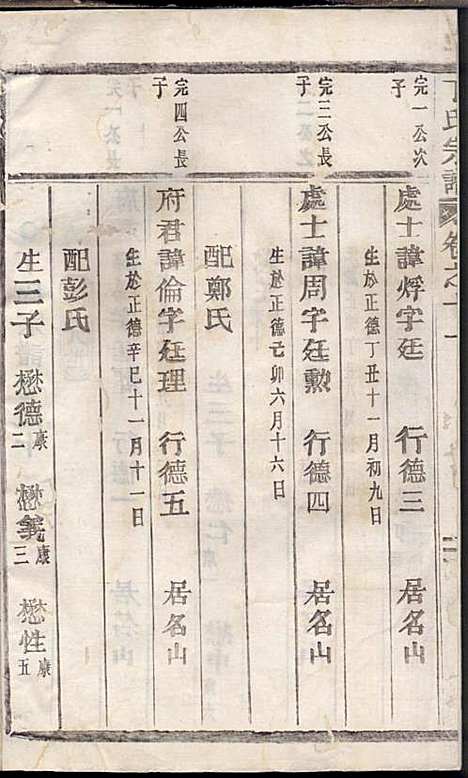 丁氏宗譜 卷之十一
完一公次子
處士諱烰字廷 行德三 居名山
生於正德丁丑十一月初九日
完三公長子
處士諱周字廷勲 行德四 居名山
生於正德己卯六月十六日
配鄭氏
完四公長子
府君諱倫字廷理 行德五 居名山
生於正德辛巳十一月十一日
配彭氏
生三子懋德康二 懋義康三 懋性康五